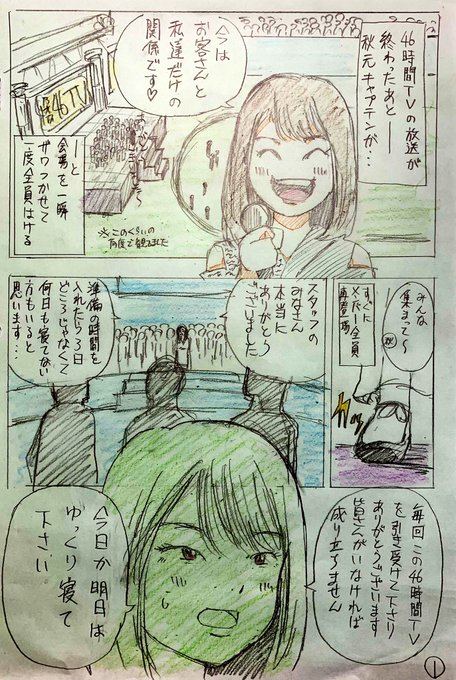 46時間TVの放送が
終わったあと──
秋元キャプテンが・・・
今は
お客さんと
私達だけの
関係です♡
46TV
──と
会場を一瞬
ザワつかせて
一度全員はける
※このくらいの
角度で観てました
みんな
集まって〜
すぐに
全員
再登場
スタッフの
みなさん
本当に
ありがとう
ございました
準備の時間を
入れたら3日
どころじゃなくて
何日も寝てない
方もいると
思います・・・
毎回この46時間TV
を引き受けて下さり
ありがとうございます
皆さんがいなければ
成り立ちません
今日か明日は
ゆっくり寝て
下さい
①